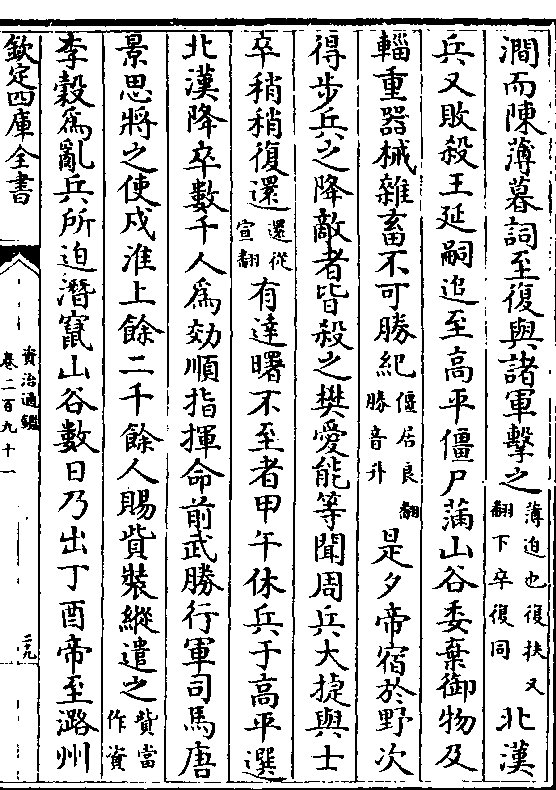 澗而陳薄暮詞至復與諸軍擊之薄迫也復扶又翻下卒復同北漢
兵又敗殺王延嗣追至高平僵尸蒲山谷委棄御物及
輜重器械雜畜不可勝紀僵居良翻勝音升是夕帝宿於野次
得步兵之降敵者皆殺之樊愛能等聞周兵大捷與士
卒稍稍復還還從宣翻有達曙不至者甲午休兵于高平選
北漢降卒數千人為効順指揮命前武勝行軍司馬唐
景思將之使戍淮上餘二千餘人賜貲裝縱遣之貲當作資
李穀為亂兵所迫潛竄山谷數日乃出丁酉帝至潞州
欽定四庫全書
資治通鑑
卷二百九十一
二九